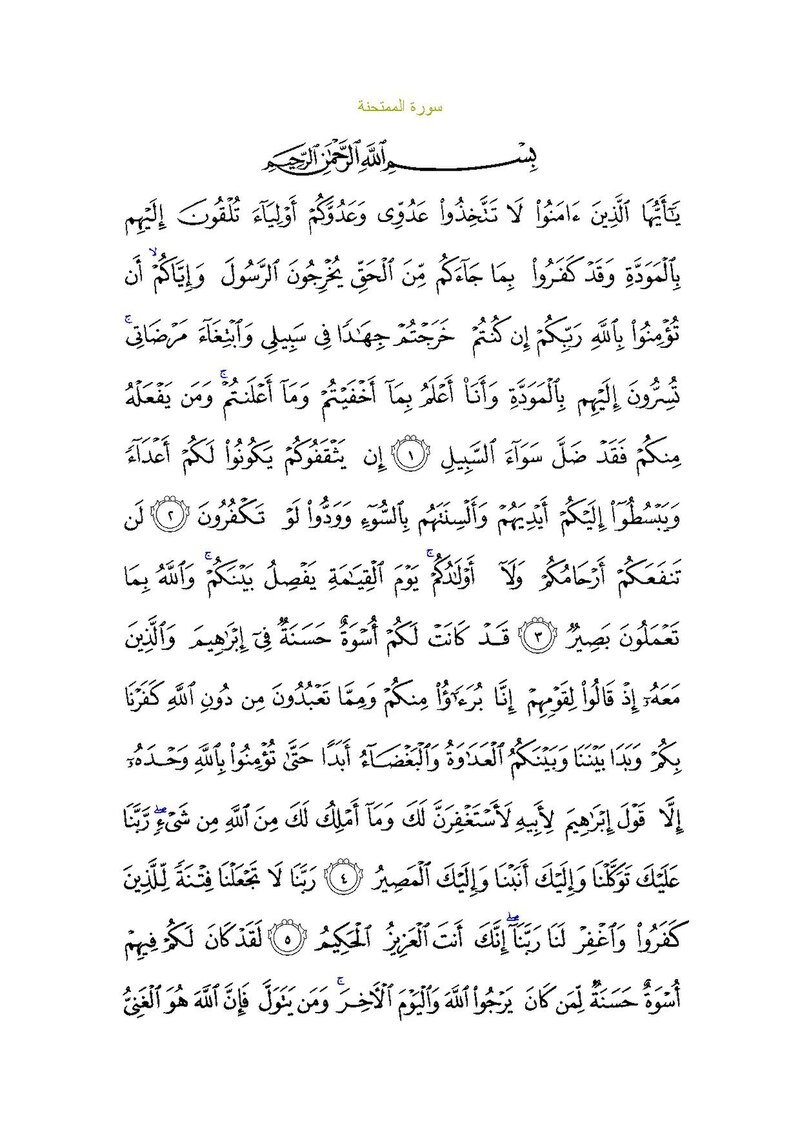 سورة الممتحنة
بِسْمِ ٱللَّهِ ٱلرَّحْمَٰنِ ٱلرَّحِيمِ
يَٰٓأَيُّهَا ٱلَّذِينَ ءَامَنُوا۟ لَا تَتَّخِذُوا۟ عَدُوِّى وَعَدُوَّكُمْ أَوْلِيَآءَ تُلْقُونَ إِلَيْهِم
بِٱلْمَوَدَّةِ وَقَدْ كَفَرُوا۟ بِمَا جَآءَكُم مِّنَ ٱلْحَقِّ يُخْرِجُونَ ٱلرَّسُولَ وَإِيَّاكُمْ ۙ أَن
تُؤْمِنُوا۟ بِٱللَّهِ رَبِّكُمْ إِن كُنتُمْ خَرَجْتُمْ جِهَٰدًا فِى سَبِيلِى وَٱبْتِغَآءَ مَرْضَاتِى ۚ
تُسِرُّونَ إِلَيْهِم بِٱلْمَوَدَّةِ وَأَنَا۠ أَعْلَمُ بِمَآ أَخْفَيْتُمْ وَمَآ أَعْلَنتُمْ ۚ وَمَن يَفْعَلْهُ
مِنكُمْ فَقَدْ ضَلَّ سَوَآءَ ٱلسَّبِيلِ ١ إِن يَثْقَفُوكُمْ يَكُونُوا۟ لَكُمْ أَعْدَآءً
وَيَبْسُطُوٓا۟ إِلَيْكُمْ أَيْدِيَهُمْ وَأَلْسِنَتَهُم بِٱلسُّوٓءِ وَوَدُّوا۟ لَوْ تَكْفُرُونَ ٢ لَن
تَنفَعَكُمْ أَرْحَامُكُمْ وَلَآ أَوْلَٰدُكُمْ ۚ يَوْمَ ٱلْقِيَٰمَةِ يَفْصِلُ بَيْنَكُمْ ۚ وَٱللَّهُ بِمَا
تَعْمَلُونَ بَصِيرٌ ٣ قَدْ كَانَتْ لَكُمْ أُسْوَةٌ حَسَنَةٌ فِىٓ إِبْرَٰهِيمَ وَٱلَّذِينَ
مَعَهُۥٓ إِذْ قَالُوا۟ لِقَوْمِهِمْ إِنَّا بُرَءَٰٓؤُا۟ مِنكُمْ وَمِمَّا تَعْبُدُونَ مِن دُونِ ٱللَّهِ كَفَرْنَا
بِكُمْ وَبَدَا بَيْنَنَا وَبَيْنَكُمُ ٱلْعَدَٰوَةُ وَٱلْبَغْضَآءُ أَبَدًا حَتَّىٰ تُؤْمِنُوا۟ بِٱللَّهِ وَحْدَهُۥٓ
إِلَّا قَوْلَ إِبْرَٰهِيمَ لِأَبِيهِ لَأَسْتَغْفِرَنَّ لَكَ وَمَآ أَمْلِكُ لَكَ مِنَ ٱللَّهِ مِن شَىْءٍ ۖ رَّبَّنَا
عَلَيْكَ تَوَكَّلْنَا وَإِلَيْكَ أَنَبْنَا وَإِلَيْكَ ٱلْمَصِيرُ ٤ رَبَّنَا لَا تَجْعَلْنَا فِتْنَةً لِّلَّذِينَ
كَفَرُوا۟ وَٱغْفِرْ لَنَا رَبَّنَآ ۖ إِنَّكَ أَنتَ ٱلْعَزِيزُ ٱلْحَكِيمُ ٥ لَقَدْ كَانَ لَكُمْ فِيهِمْ
أُسْوَةٌ حَسَنَةٌ لِّمَن كَانَ يَرْجُوا۟ ٱللَّهَ وَٱلْيَوْمَ ٱلْـَٔاخِرَ ۚ وَمَن يَتَوَلَّ فَإِنَّ ٱللَّهَ هُوَ ٱلْغَنِىُّ